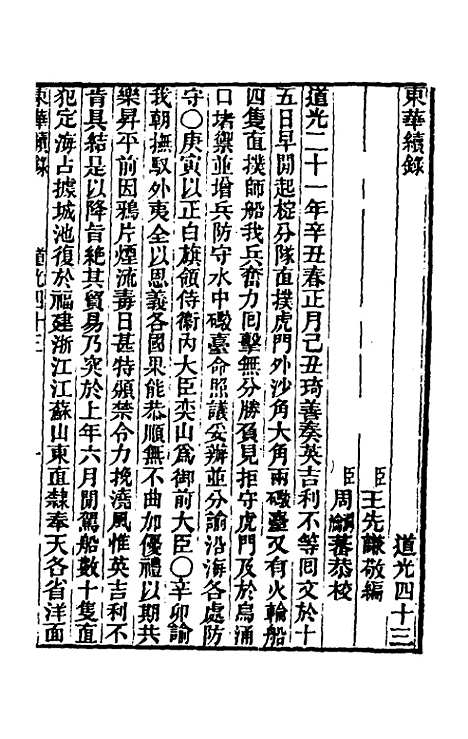 東華續錄
道光四十三
臣王先謙敬編
臣周蕃恭校
道光二十一年辛丑春正月己丑琦善奏英吉利不等囘文於十
五日早開起椗分隊面撲虎門外沙角大角兩礮臺又有火輪船
四隻直撲師船我兵奮力囘擊無分勝負見拒守虎門及於烏涌
口堵禦並增兵防守水中礮臺命照議妥辦並分諭沿海各處防
守〇庚寅以正白旗領侍衞內大臣奕山爲御前大臣〇辛卯諭
我朝撫馭外夷全以恩義各國果能恭順無不曲加優禮以期共
樂昇平前因鴉片煙流毒日甚特頒禁令力挽澆風惟英吉利不
肯具結是以降旨絕其貿易乃突於上年六月閒駕船數十隻直
犯定海占據城池復於福建浙江江蘇山東直隸奉天各省洋面
東華續錄
道光四十三
一